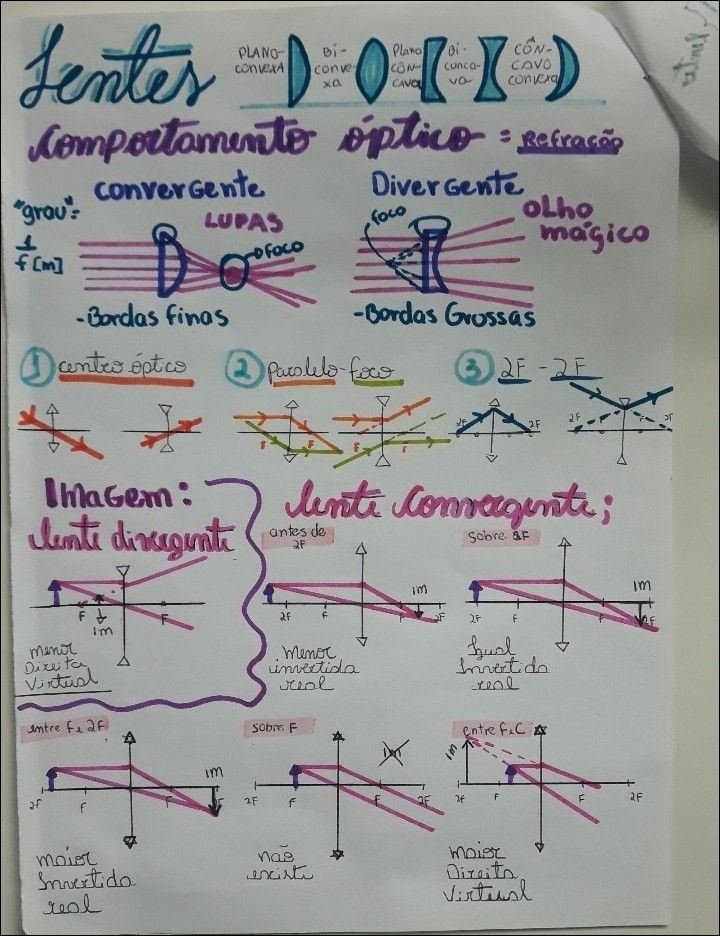 Lentes
PLANO-
CONVEXA
Bi-
conve
xa
Plano
CÔN-
CAVO
Bi-
conca-
va-
CÔN-
CAVO
convexa
Comportamento óptico = Refração
convergente
Divergente
"grau"=
1
f [m]
LUPAS
foco
foco
OLHO
mágico
-Bordas finas
-Bordas Grossas
1 centro óptico
2 Paralelo-foco
3 2F - 2F
F
F
F
F
2F
2F
2F
F
2F
Imagem:
lente divergente
lente convergente;
antes de
2F
sobre 2F
F
im
F
menor
Direita
Virtual
2F
F
im
2F
Menor
invertida
real
2F
F
im
2F
Igual
Invertida
real
entre F e 2F
sobre F
entre F e C
2F
F
F
im
maior
Invertida
real
2F
F
im
F
2F
não
existe
im
2F
F
F
2F
maior
Direita
Virtual